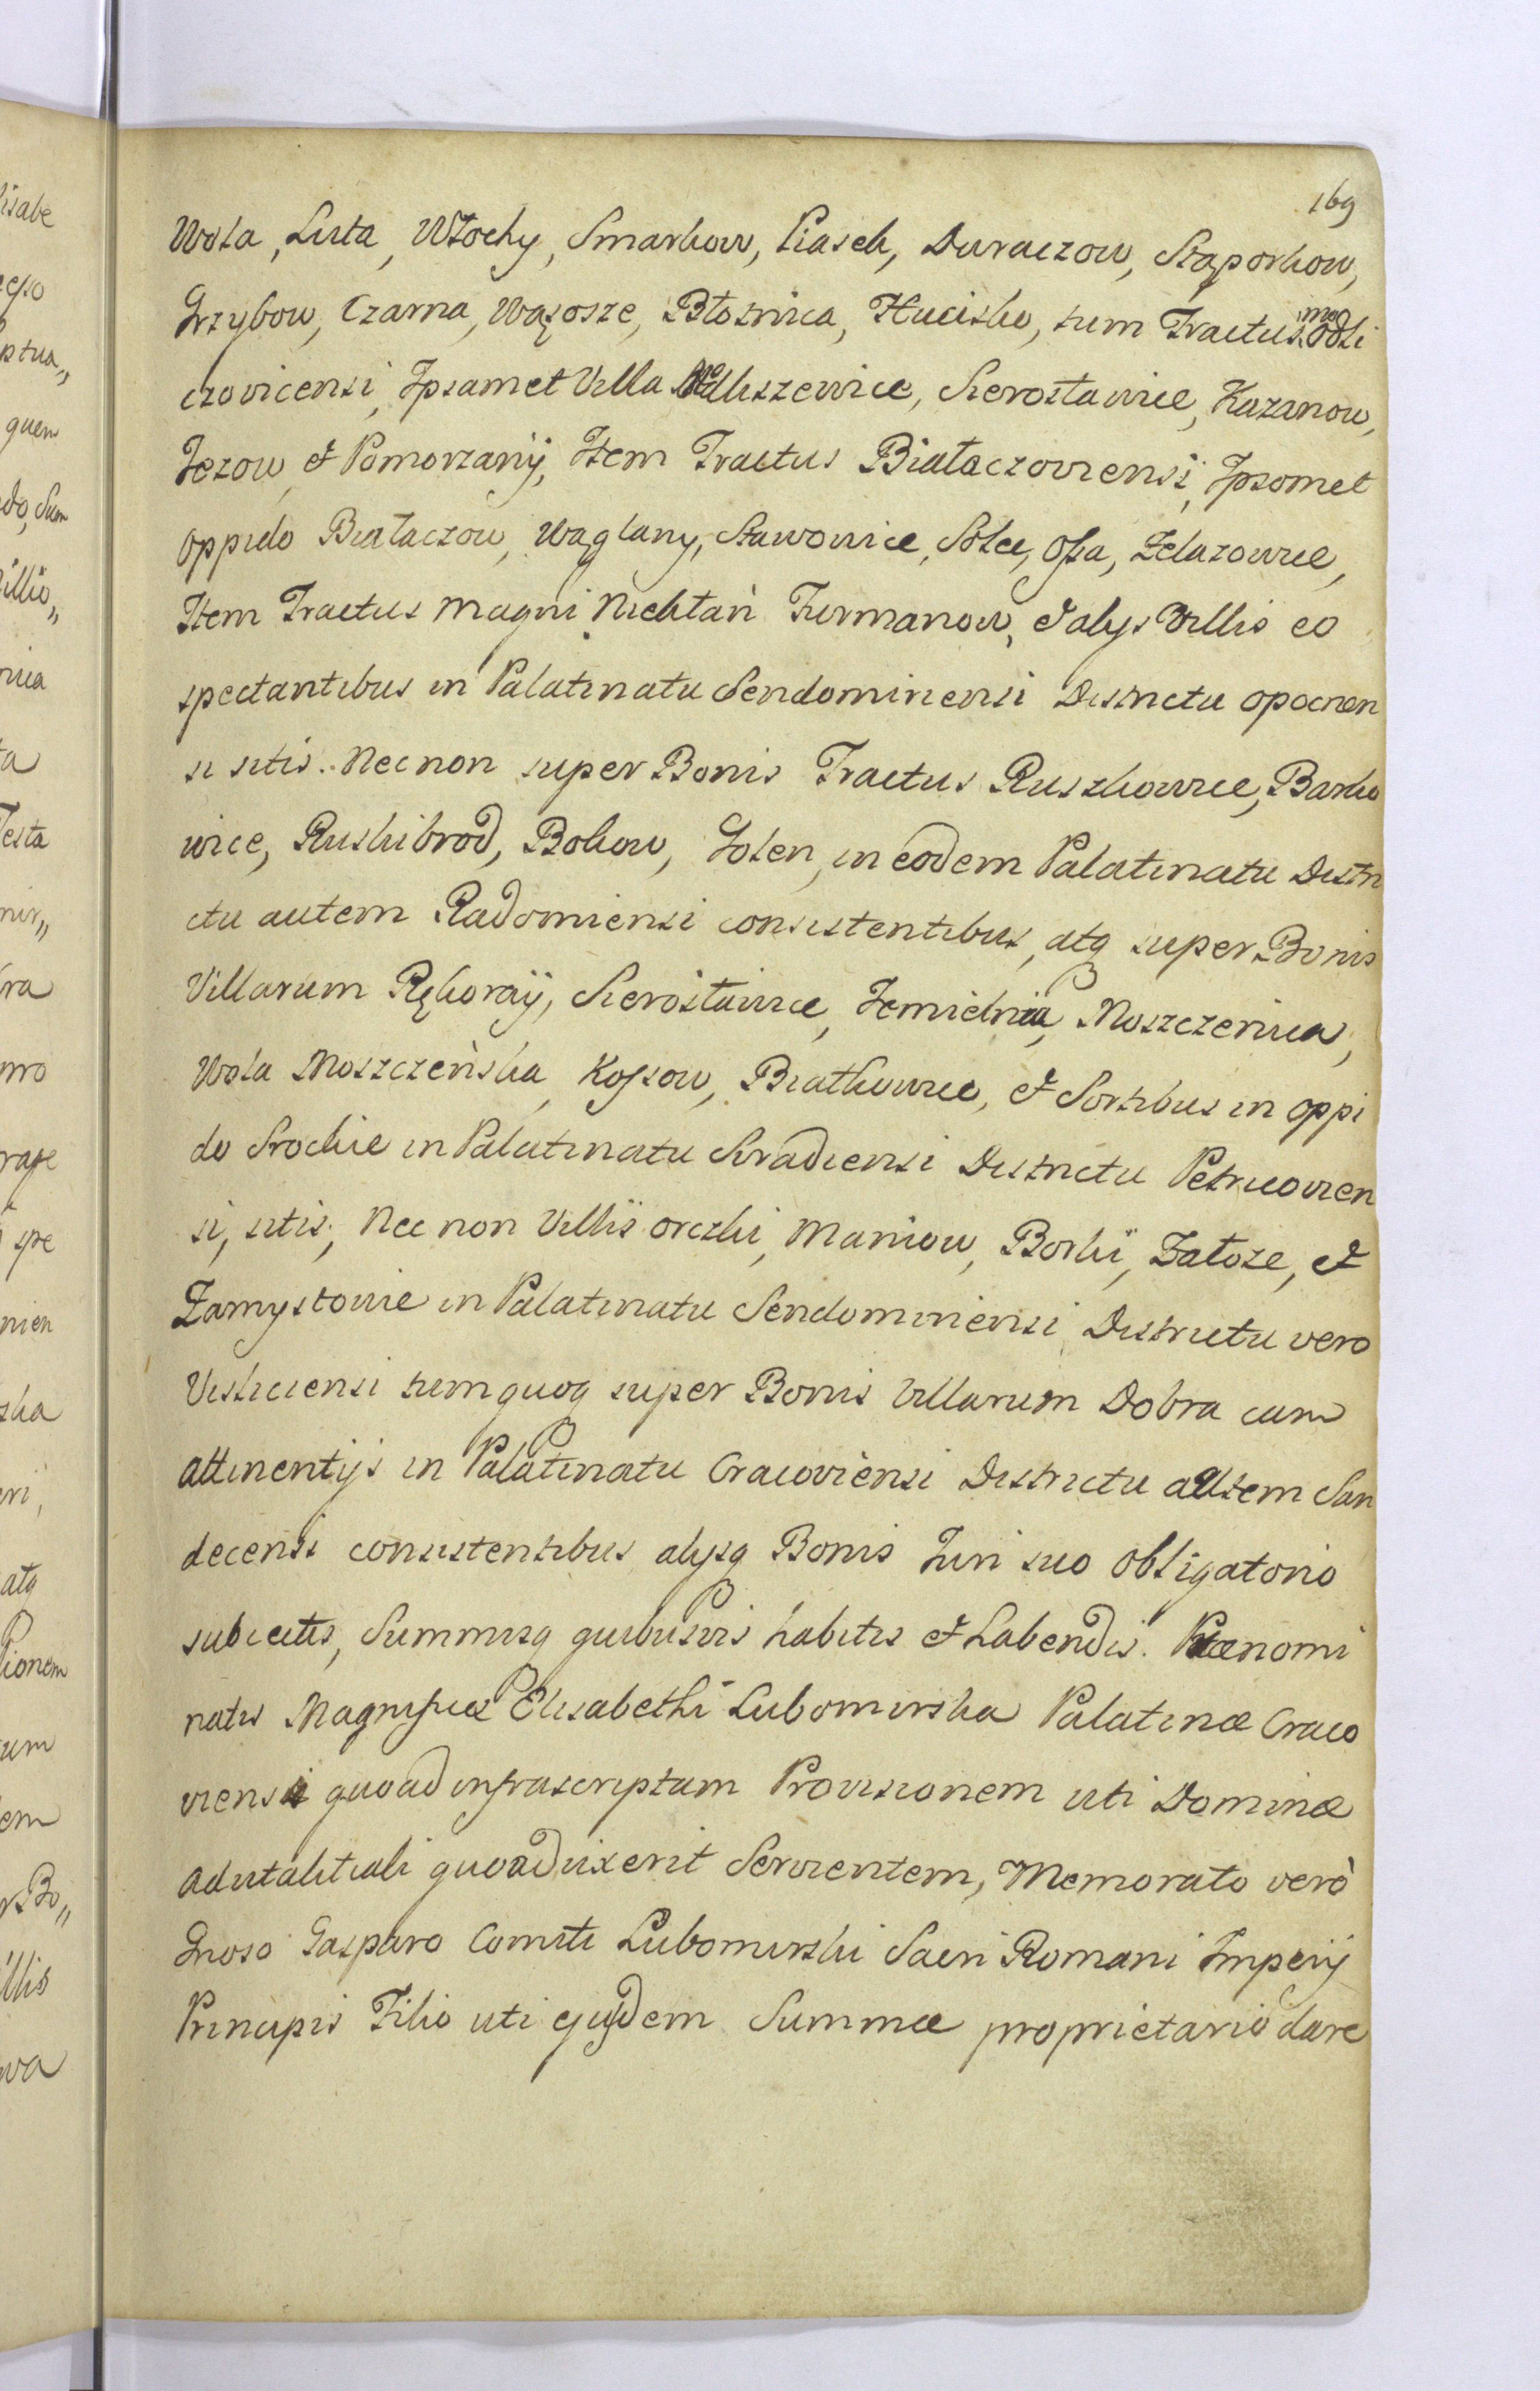 169
Wola, Luta, Włochy, Smarkow, Piasek, Duraczow, Stąporkow,
Grzybow, Czarna, Wąsosze, Błotnica, Hucisko, tum Tractus Modli
czovicensi, Ipsamet Villa Modliszewice, Sierosławice, Kazanow,
Jezow, et Pomorzany, Item Tractus Białaczoviensi, Ipsomet
oppido Białaczow, Wąglany, Sławowice, Solec, Ossa, Zelazowice,
Item Tractus Magni Niekłań Furmanow, et alijs Villis eo
spectantibus in Palatinatu Sendomiriensi Districtu opocnen
si sitis. Nec non super Bonis Tractus Ruszkowice, Barko
wice, Ruskibrod, Bokow, Goleń, in eodem Palatinatu Distri
ctu autem Radomiensi consistentibus, atq super Bonis
Villarum Rękoraÿ, Sierosławice, Jemielnia, Moszczenica,
Wola Moszczeńska, Kossow, Białkowice, et Sortibus in oppi
do Srockie in Palatinatu Siradiensi Districtu Petricovien
si, sitis, Nec non Villis orczki, Maniow, Borki, Załoze, et
Zamysłowie in Palatinatu Sendomiriensi Districtu vero
Visliciensi tum quoq super Bonis Villarum Dobra cum
attinentijs in Palatinatu Cracoviensi Districtu autem San
decensi consistentibus, alijsq Bonis Juri suo obligatorio
subiectis, Summisq quibusvis habitis et habendis. Prænomi
natis Magnificæ Elisabethi Lubomirska Palatinæ Craco
viensi quoad infrascriptam Provisionem uti Dominæ
advitalitiali quoadvixerit Servientem, Memorato verò
Gnoso Gasparo Comiti Lubomirski Sacri Romani Imperij
Principis Filio uti ejusdem Summæ proprietario dare